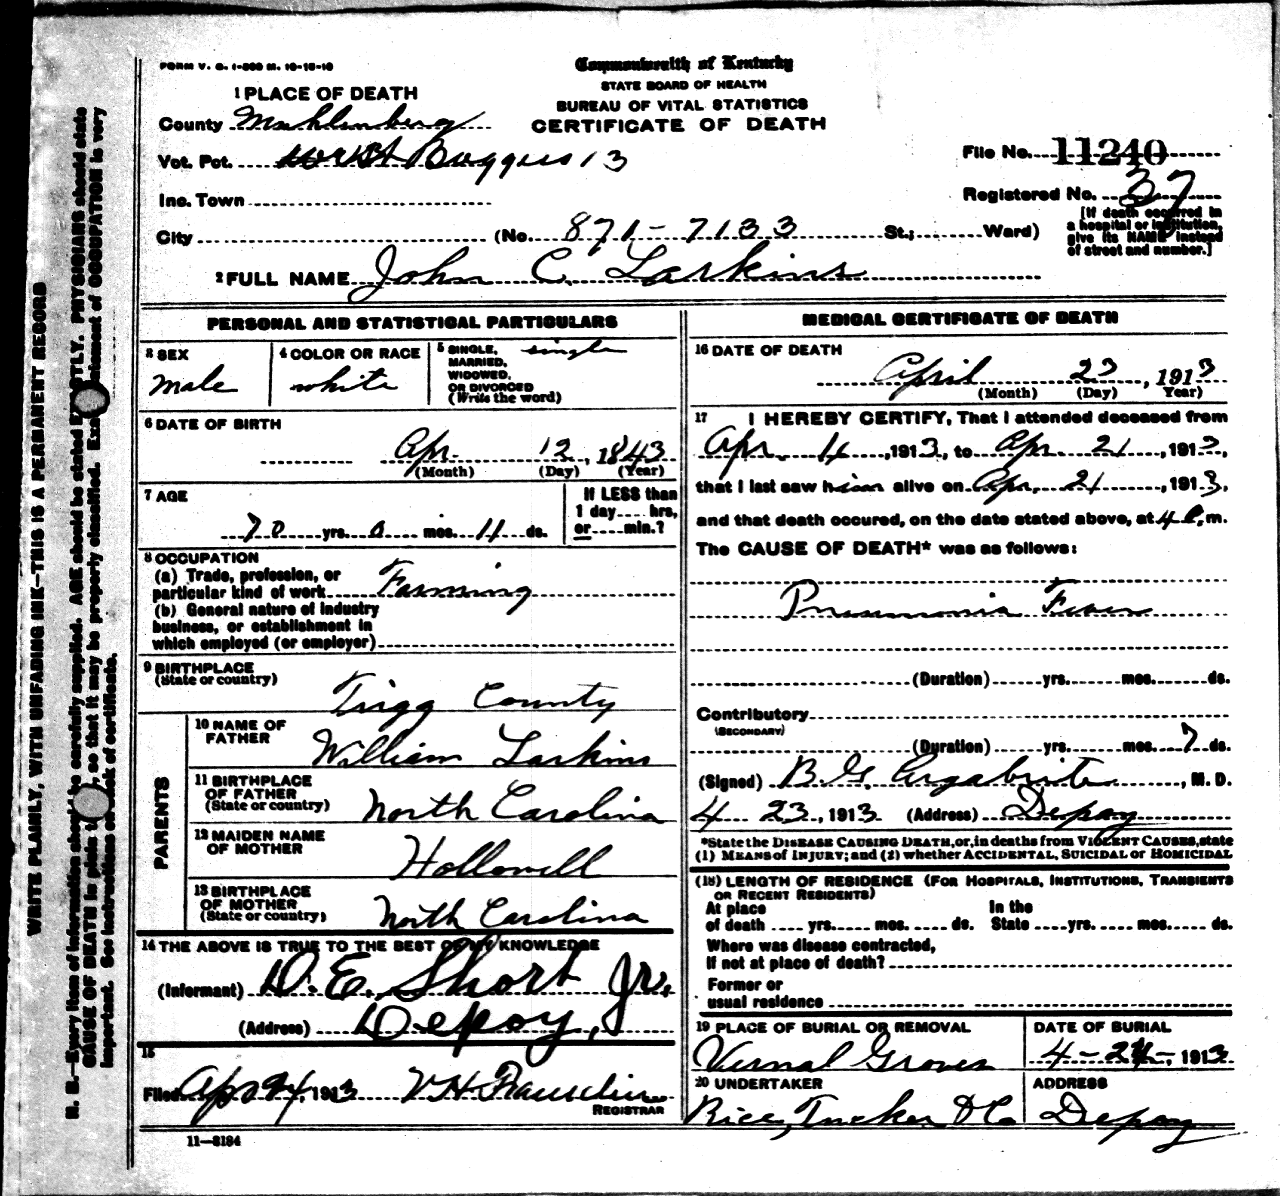 FORM V. S. 1-500 M. 10-15-10
Commonwealth of Kentucky
STATE BOARD OF HEALTH
BUREAU OF VITAL STATISTICS
CERTIFICATE OF DEATH
1 PLACE OF DEATH
County Muhlenberg
Vot. Pct. West Boggess 13
Inc. Town
City (No. 871-7133 St.; Ward)
File No. 11240
Registered No. 37
[If death occurred in a hospital or institution, give its NAME instead of street and number.]
2 FULL NAME John C. Larkins
PERSONAL AND STATISTICAL PARTICULARS
3 SEX male
4 COLOR OR RACE white
5 SINGLE, MARRIED, WIDOWED, OR DIVORCED (Write the word) single
6 DATE OF BIRTH
Apr. 12, 1843
(Month) (Day) (Year)
7 AGE
70 yrs. 0 mos. 11 ds.
If LESS than 1 day.... hrs, or....min.?
8 OCCUPATION
(a) Trade, profession, or particular kind of work Farming
(b) General nature of industry business, or establishment in which employed (or employer)
9 BIRTHPLACE (State or country)
Trigg County
PARENTS
10 NAME OF FATHER
William Larkins
11 BIRTHPLACE OF FATHER (State or country)
North Carolina
12 MAIDEN NAME OF MOTHER
Hollowell
13 BIRTHPLACE OF MOTHER (State or country)
North Carolina
14 THE ABOVE IS TRUE TO THE BEST OF MY KNOWLEDGE
(Informant) D. E. Short Jr.
(Address) Depoy,
15
Filed Apr 24, 1913 V H
REGISTRAR
11—8184
MEDICAL CERTIFICATE OF DEATH
16 DATE OF DEATH
April 23, 1913
(Month) (Day) Year)
17 I HEREBY CERTIFY, That I attended deceased from
Apr. 4, 1913, to Apr. 21, 1913,
that I last saw him alive on Apr. 21, 1913,
and that death occured, on the date stated above, at 4 P, m.
The CAUSE OF DEATH* was as follows:
Pneumonia Fever
(Duration) yrs. mos. ds.
Contributory
(SECONDARY)
(Duration) yrs. mos. 7 ds.
(Signed) B. G. Argabrite, M. D.
4 23, 1913 (Address) Depoy
*State the DISEASE CAUSING DEATH, or, in deaths from VIOLENT CAUSES, state
(1) MEANS of INJURY; and (2) whether ACCIDENTAL, SUICIDAL or HOMICIDAL
(18) LENGTH OF RESIDENCE (FOR HOSPITALS, INSTITUTIONS, TRANSIENTS OR RECENT RESIDENTS)
At place of death .... yrs. .... mos. .... ds. In the State ....yrs. .... mos. .... ds.
Where was disease contracted,
If not at place of death?
Former or
usual residence
19 PLACE OF BURIAL OR REMOVAL
Vernal Grove
DATE OF BURIAL
4-24-, 1913
20 UNDERTAKER
Rice, Tucker & Co
ADDRESS
Depoy
WRITE PLAINLY, WITH UNFADING INK—THIS IS A PERMANENT RECORD
N. B.—Every item of information should be carefully supplied. AGE should be stated EXACTLY. PHYSICIANS should state
CAUSE OF DEATH in plain , so that it may be properly classified. Exact statement of OCCUPATION is very
important. See instructions on back of certificate.